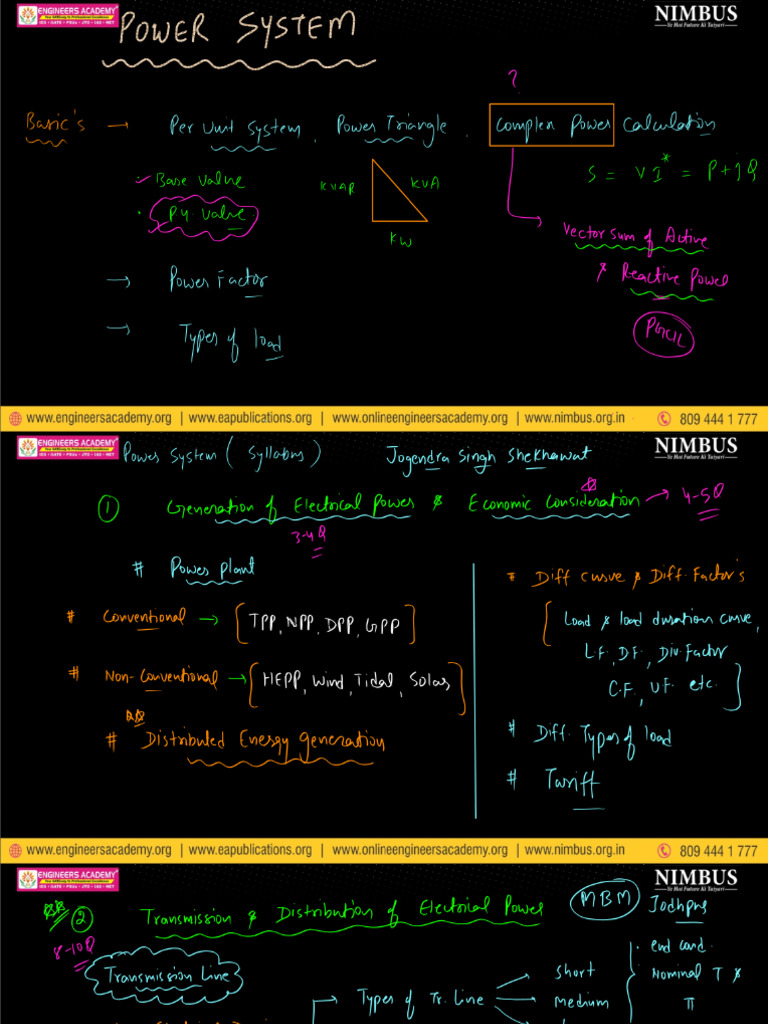 ENGINEERS ACADEMY
NIMBUS
POWER SYSTEM
?
Basic's → Per Unit System, Power Triangle, Complex Power Calculation
Base Value
P.U. Value
KVAR
KVA
KW
S = VI* = P+jQ
Vector sum of Active
& Reactive Power
PGCIL
→ Power Factor
→ Types of load
www.engineersacademy.org | www.eapublications.org | www.onlineengineersacademy.org | www.nimbus.org.in
809 444 1 777
ENGINEERS ACADEMY
NIMBUS
Power System (Syllabus)
Jogendra Singh Shekhawat
① Generation of Electrical Power & Economic Consideration → 4-5Q
3-4Q
# Power Plant
# Conventional → [TPP, NPP, DPP, GPP]
# Non-Conventional → [HEPP, Wind, Tidal, Solar]
# Distributed Energy generation
* Diff curve & Diff. Factor's
[Load & load duration curve,
L.F., D.F., Div. Factor
C.F., U.F. etc.]
# Diff. Types of load
# Tariff
www.engineersacademy.org | www.eapublications.org | www.onlineengineersacademy.org | www.nimbus.org.in
809 444 1 777
ENGINEERS ACADEMY
NIMBUS
② Transmission & Distribution of Electrical Power
MBM
Jodhpur
8-10Q
Transmission Line
→ Types of Tr. Line
short
medium
• end cond.
• Nominal T &
π